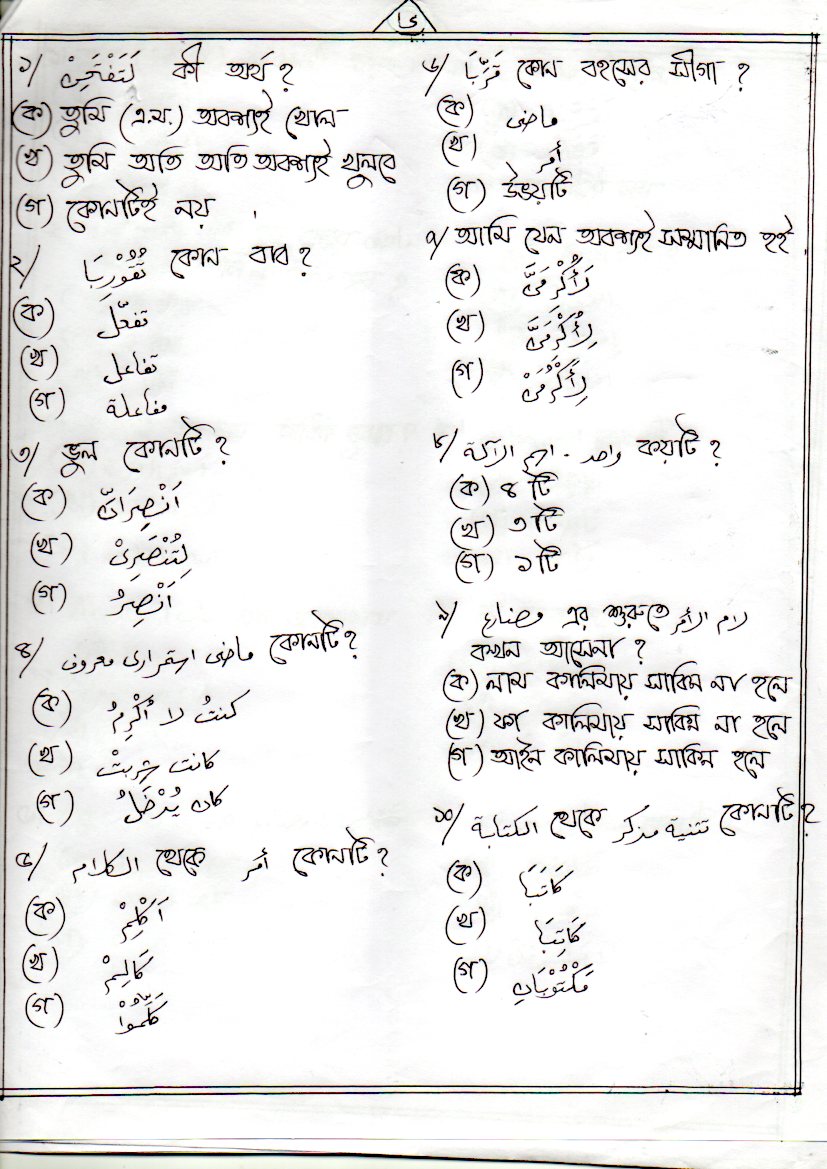 ১/ لَتَفْتَحِنْ কী অর্থ?
(ক) তুমি (এ.ব.) অবশ্যই খোল
(খ) তুমি অতি অতি অবশ্যই খুলবে
(গ) কোনটিই নয়
২/ تُقُوْرِبَا কোন বাব?
(ক) تفعّل
(খ) تفاعل
(গ) مفاعلة
৩/ ভুল কোনটি?
(ক) اَنْصِرَانِّ
(খ) لِتُنْصَرِىْ
(গ) اَنْصِرُ
৪/ ماضى استمرارى معروف কোনটি?
(ক) كنتُ لا أُكْرِمُ
(খ) كانت شربتْ
(গ) كان يُدْخَلُ
৫/ الكلام থেকে أمر কোনটি?
(ক) اَكْلِمْ
(খ) كَالِمْ
(গ) كَلِّمُوْا
৬/ قَرَّبَا কোন বহসের সীগা?
(ক) ماضى
(খ) أمر
(গ) উভয়টি
৭/ আমি যেন অবশ্যই সম্মানিত হই
(ক) لَأُكْرَمَنَّ
(খ) لِأُكْرَمَنَّ
(গ) لِأُكْرَمَنْ
৮/ واحد - اسم الآلة কয়টি?
(ক) ৪ টি
(খ) ৩ টি
(গ) ১ টি
৯/ مضارع এর শুরুতে لام الأمر
কখন আসেনা?
(ক) লাম কালিমায় সাকিন না হলে
(খ) ফা কালিমায় সাকিন না হলে
(গ) আইন কালিমায় সাকিন হলে
১০/ الكتابة থেকে تثنية مذكر কোনটি?
(ক) كَاتَبَا
(খ) كَاتِبَا
(গ) مَكْتُوْبَانِ